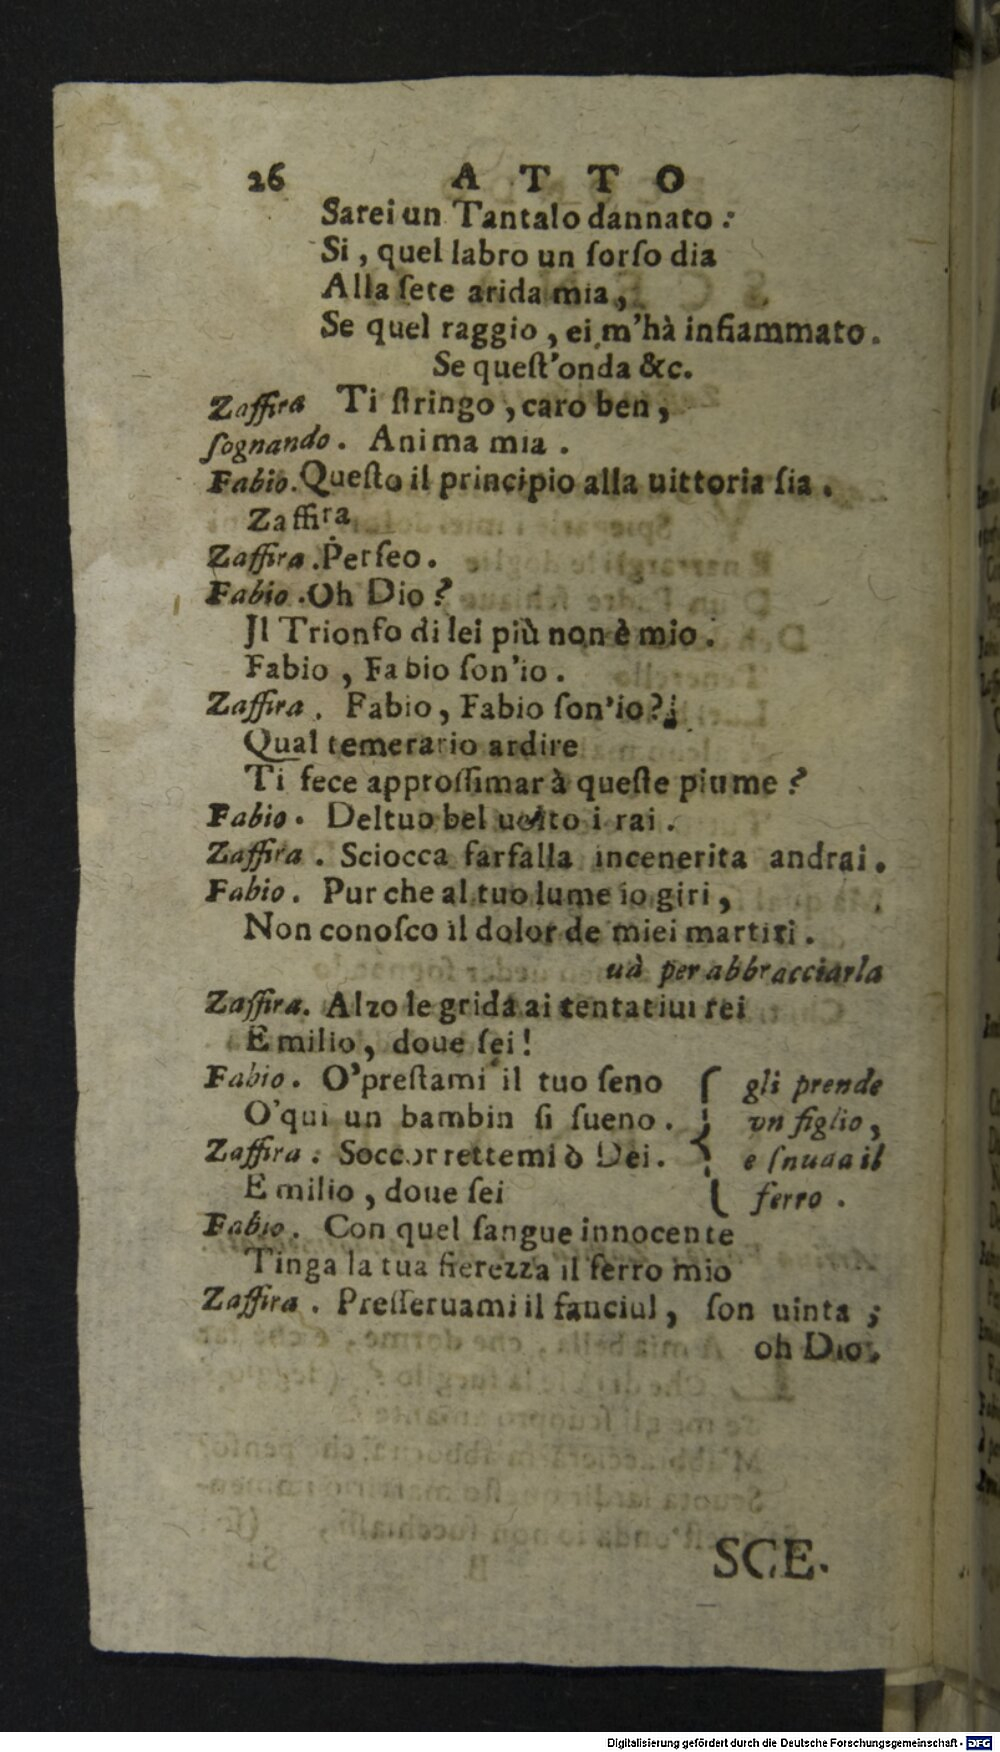 26 ATTO
Sarei un Tantalo dannato :
Si , quel labro un ſorſo dia
Alla ſete arida mia ,
Se quel raggio , ei m'hà infiammato .
Se queſt'onda &c.
Zaffira Ti ſtringo , caro ben ,
ſognando . Anima mia .
Fabio . Queſto il principio alla uittoria ſia .
Zaffira
Zaffira . Perſeo .
Fabio . Oh Dio ?
Jl Trionfo di lei più non è mio .
Fabio , Fabio ſon'io .
Zaffira . Fabio , Fabio ſon'io ? ¡
Qual temerario ardire
Ti fece approſſimar à queſte piume ?
Fabio . Deltuo bel uolto i rai .
Zaffira . Sciocca farfalla incenerita andrai .
Fabio . Pur che al tuo lume io giri ,
Non conoſco il dolor de miei martiri .
uà per abbracciarla
Zaffira . Alzo le grida ai tentatiui rei
Emilio , doue ſei !
Fabio . O'preſtami il tuo ſeno { gli prende
O'qui un bambin ſi ſueno . vn figlio ,
Zaffira . Soccorrettemi ò Dei . e ſnuda il
Emilio , doue ſei ferro .
Fabio . Con quel ſangue innocente
Tinga la tua fierezza il ferro mio
Zaffira . Preſſeruami il fanciul , ſon uinta ;
oh Dio .
SCE.
Digitalisierung gefördert durch die Deutsche Forschungsgemeinschaft - DFG